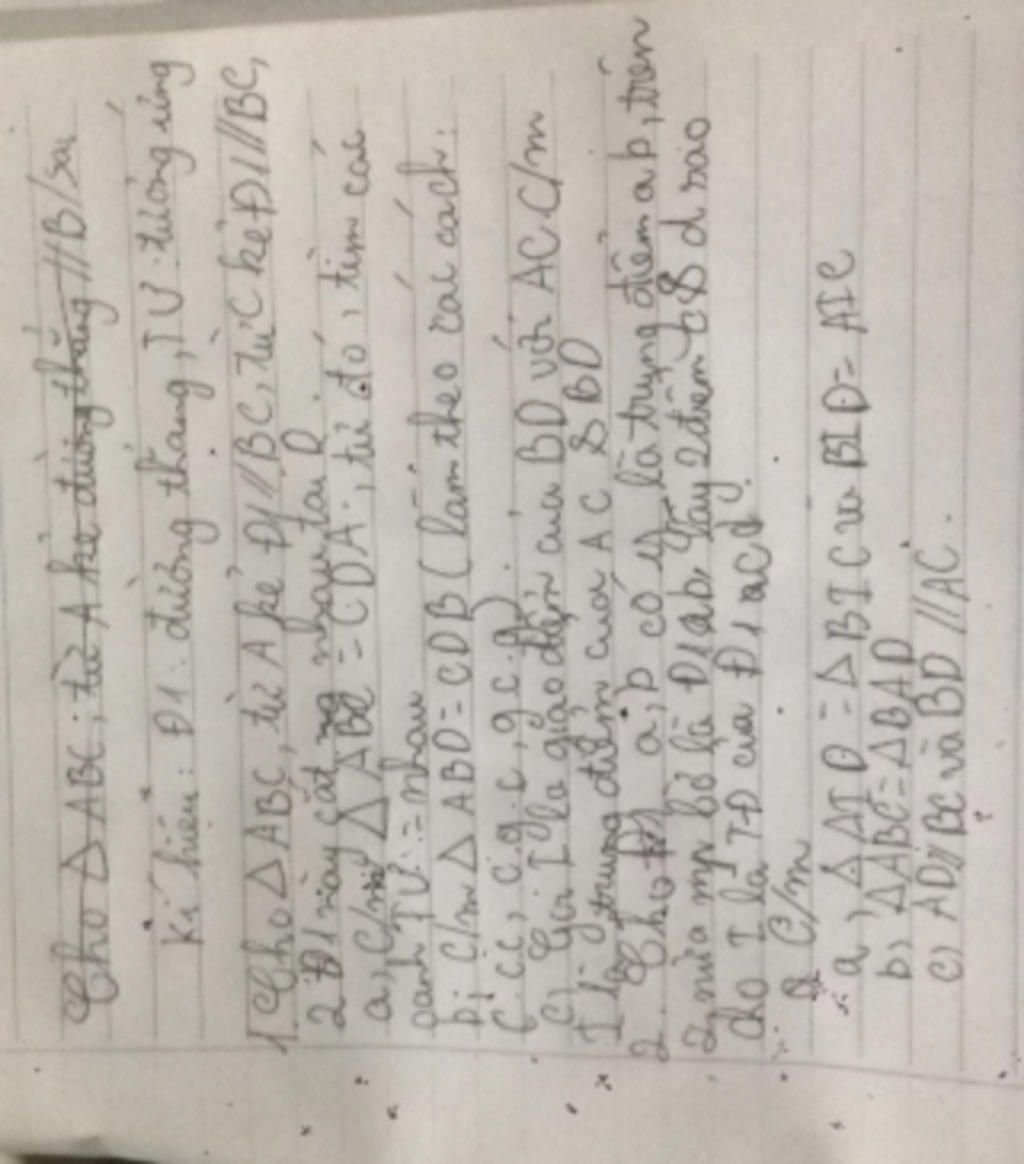 Cho Δ ABC; từ A kẻ đường thẳng //B/sa
Kí hiệu: Đ1: đường thẳng, TU: tương ứng
1. Cho Δ ABC, từ A kẻ Đ1//BC, từ C kẻ Đ1//BC,
2 Đ1 này cắt nhau tại D.
a, C/m Δ ABC = CDA; từ đó, tìm các
cạnh TU = nhau
b; C/m Δ ABD = CDB (làm theo các cách:
C.C.C, C.g.C, g.C.g)
c) Gọi I là giao điểm của BD với AC C/m
I là trung điểm của AC & BD
2. Cho a,b có là trung điểm ab, trên
2 nửa mp bờ là Đ1ab, lấy 2 điểm c & d sao
cho I là TĐ của Đ1 acd.
C/m
a, Δ AID = Δ BIC và BID = AIC
b, ΔABC = ΔBAD
c) AD//BC và BD //AC.